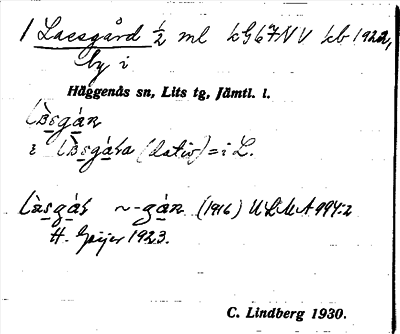 1 Laesgård ½ ml kG67NV kb 1922,
by i
Häggenås sn, Lits tg, Jämtl. l.
Lɑ̀sgán
i Lɑ̀sgáɴa (dativ) = i L.
~ -gán (1916) ULMA 994:2
H. Geijer 1923.
C. Lindberg 1930.